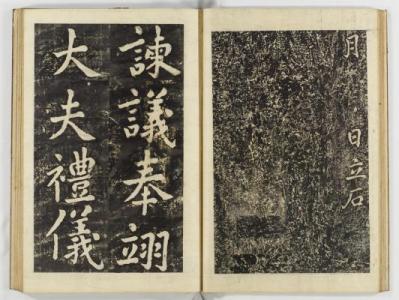 月　日立石
諫議奉翊
大夫禮儀